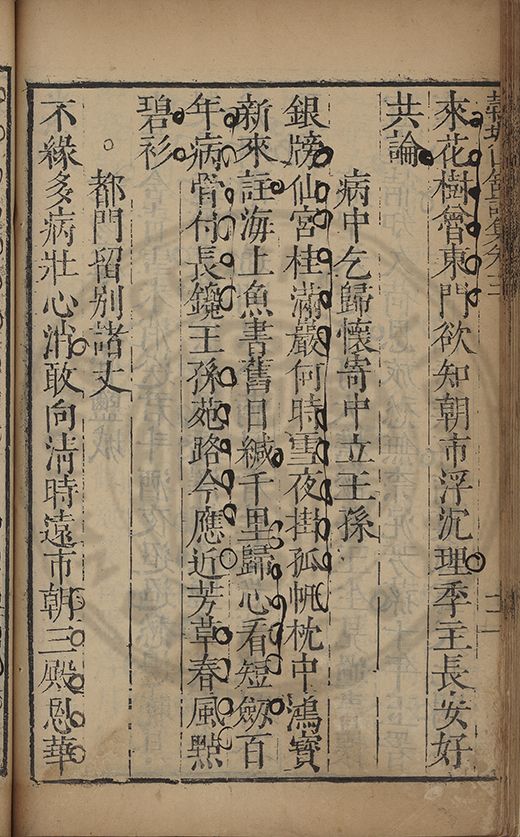 來花樹會東門欲知朝市浮沉理季主長安好
共論
病中乞歸懷寄中立王孫
銀牓仙宮桂滿嚴何時雪夜掛孤帆枕中鴻寶
新來註海上魚書舊日緘千里歸心看短劒百
年病骨付長鑱王孫苑路今應近芳草春風點
碧衫
都門留別諸丈
不緣多病壯心消敢向清時遠市朝三殿恩華